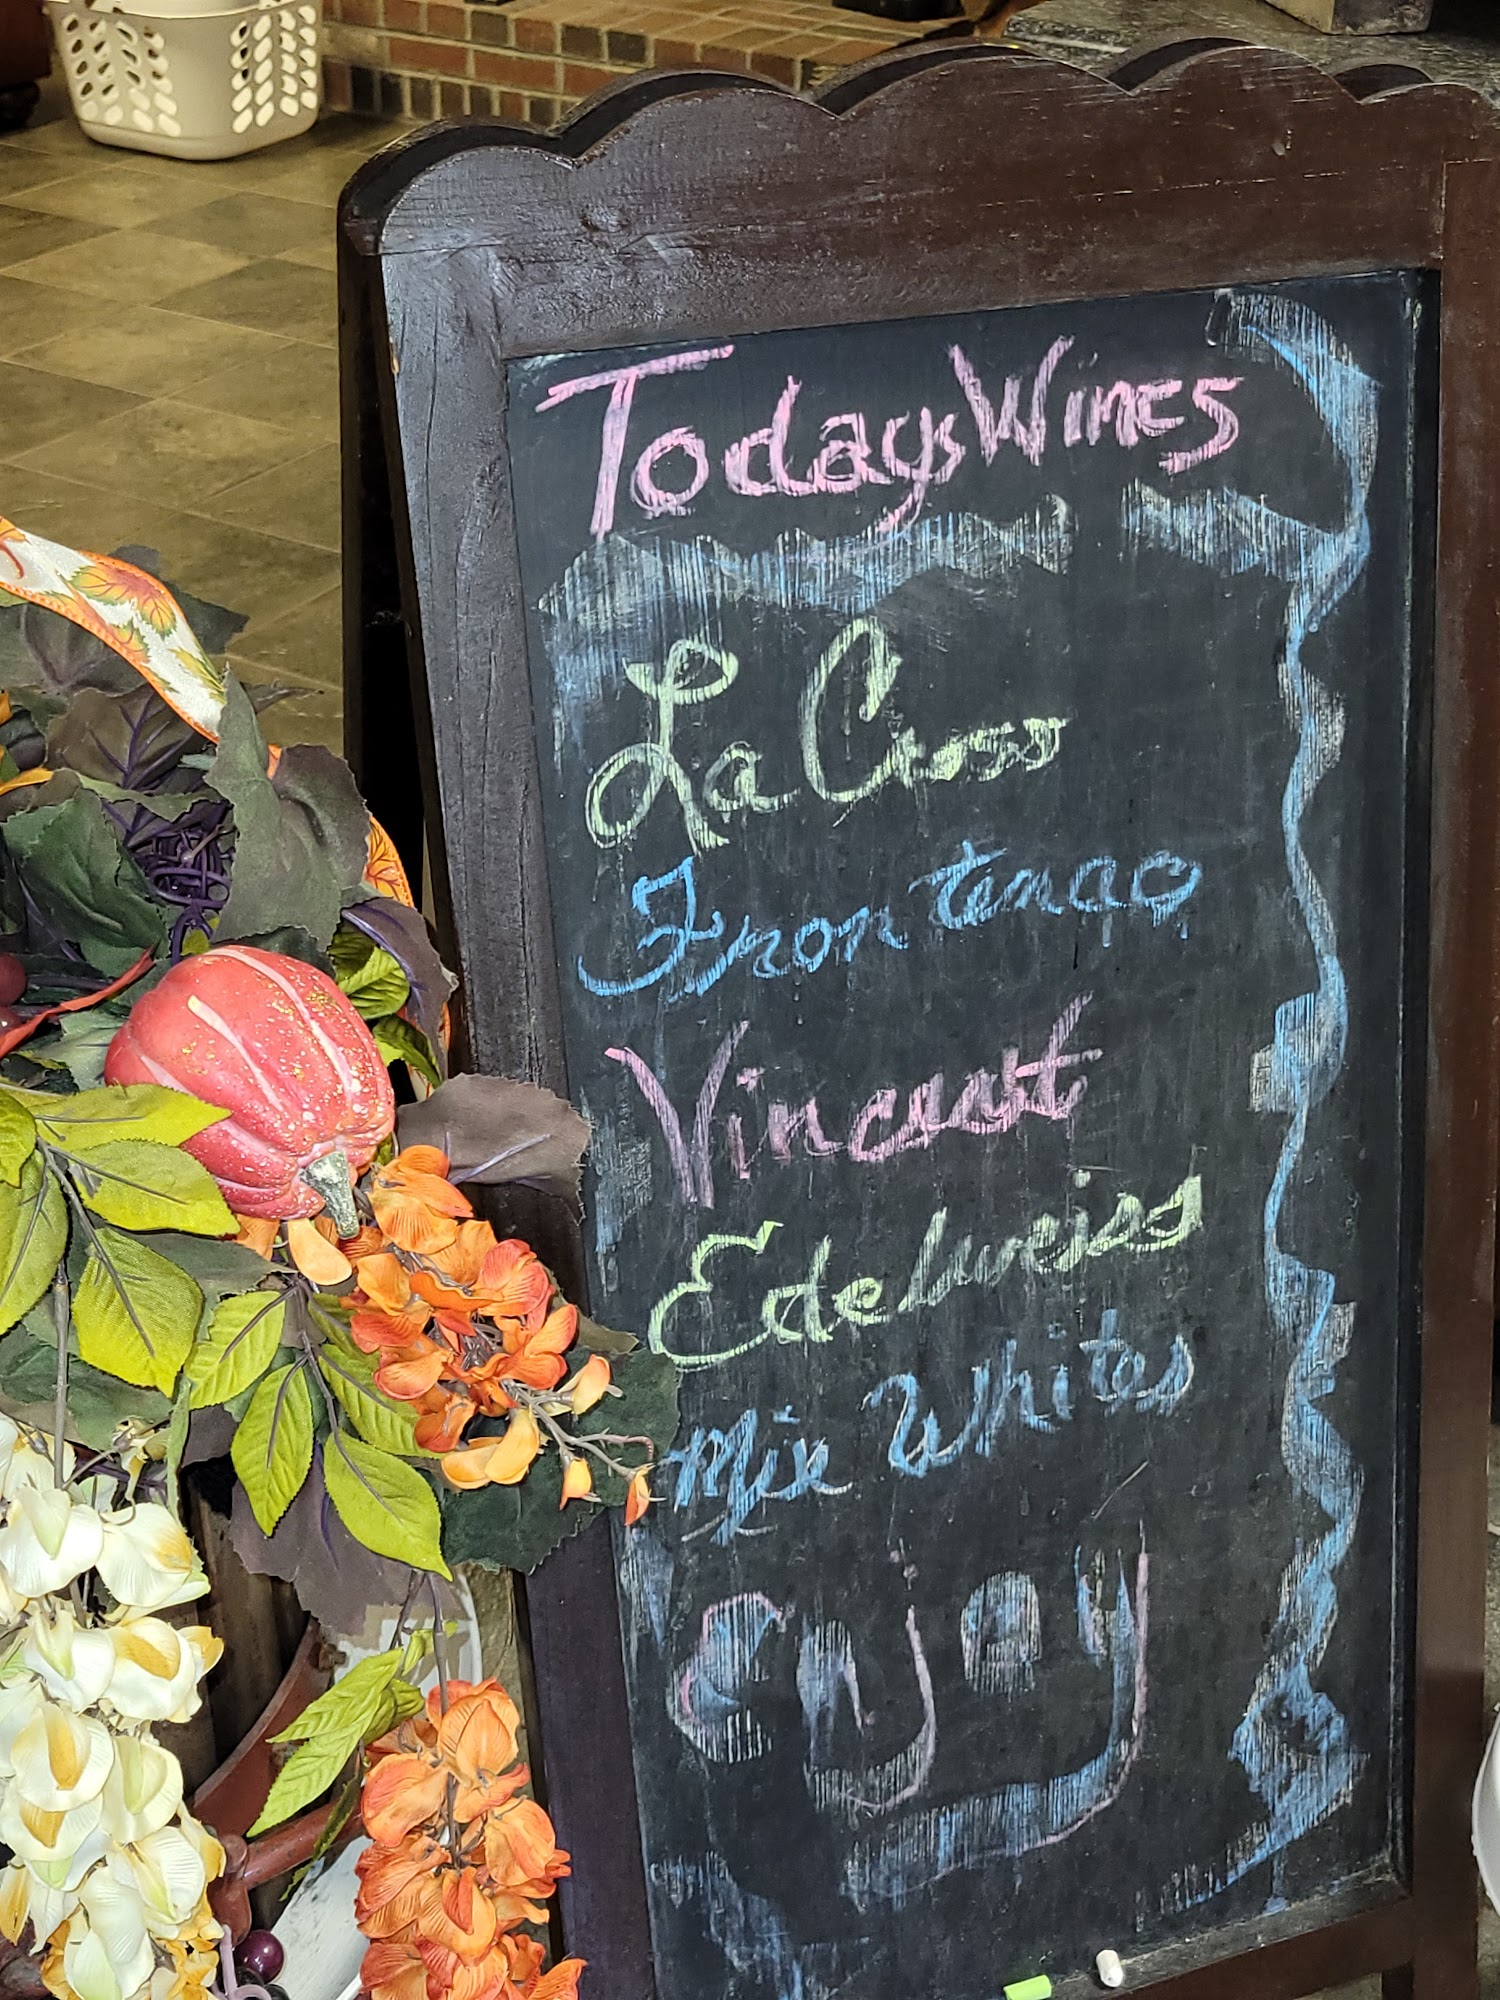 Todays Wines
La Cross
Frontenao
Vincent
Edelweiss
Mix Whites
enjoy